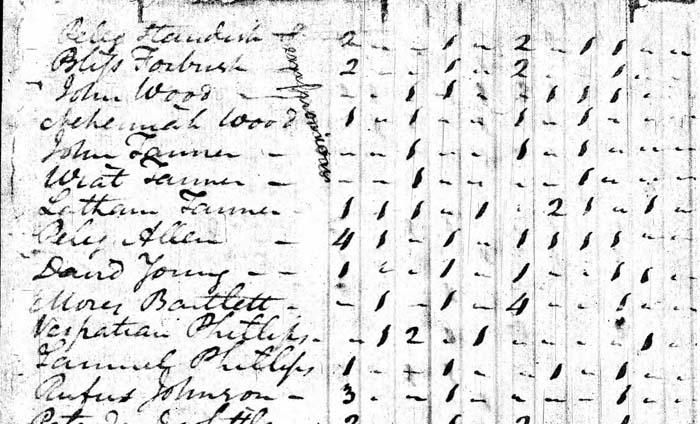 Peleg Standish - 2 - - 1 - 2 - 1 1 - -
Bliss Forbush 2 - - 1 - 2 - - 1 - -
John Wood - - - - 1 1 - - 1 1 1 - -
Nehemiah Wood 1 - 1 - - 1 - 1 - - -
John Tanner - - - 1 - - 1 - 1 - - -
Wiat Tanner - - - 1 - - - - 1 - - -
Latham Tanner - 1 1 1 - 1 - 2 1 - 1 -
Peleg Allen - 4 1 - 1 - 1 1 1 1 - -
David Young - - 1 - - 1 - 1 - - 1 1 -
Moses Bartlett - - 1 - 1 - 4 - - 1 - -
Vespatian Phillips - - 1 2 - 1 - - - - 1 -
Samuel Phillips 1 - - 1 - - 1 - 1 - -
Rufus Johnson - 3 - - 1 - - - - 1 - -